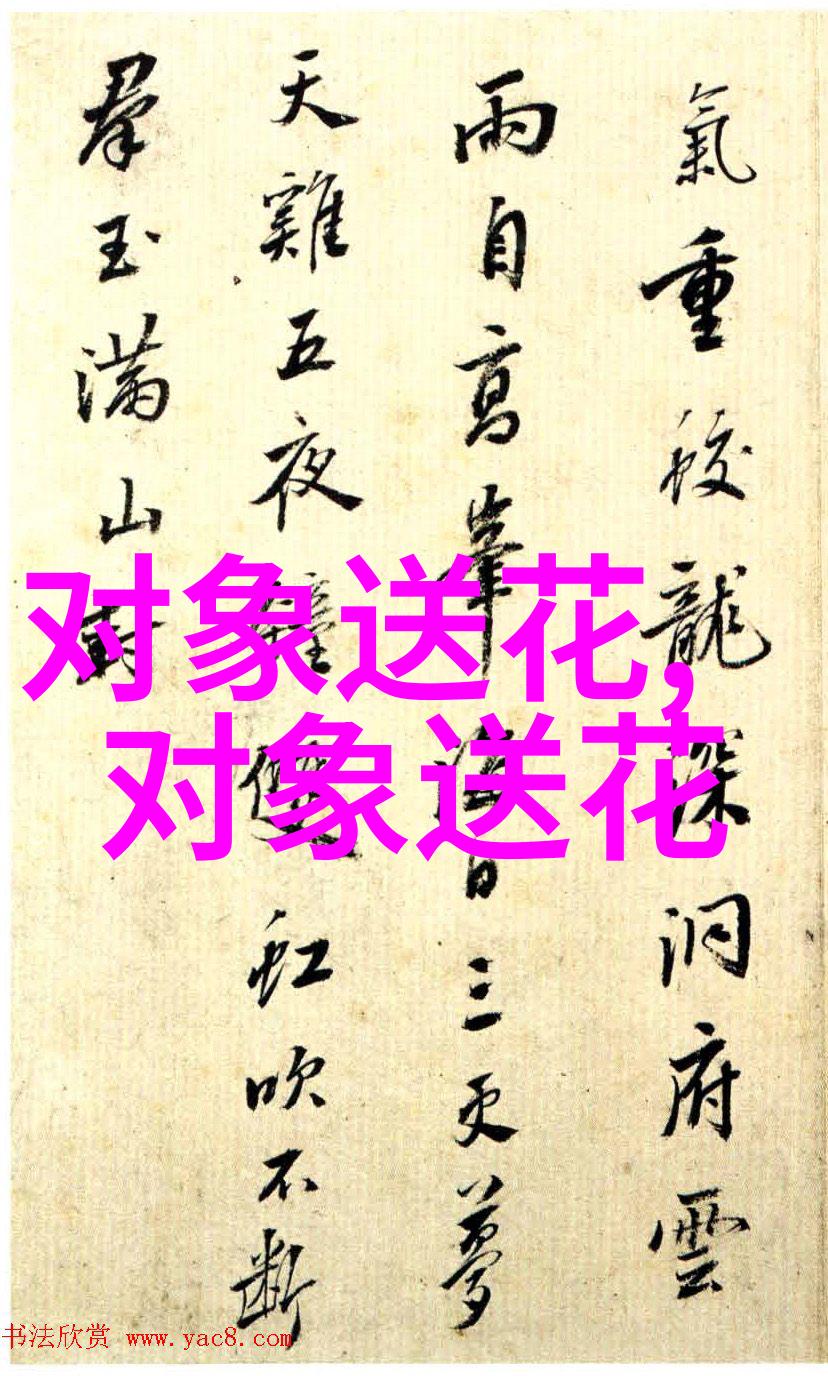 氣重蛟龍深洞府雲
雨自高峯海日三更夢
天雞五夜鐘雙虹吹不斷
羣玉滿山
对象送花,
对象送花
书法欣赏 www.yac8.com